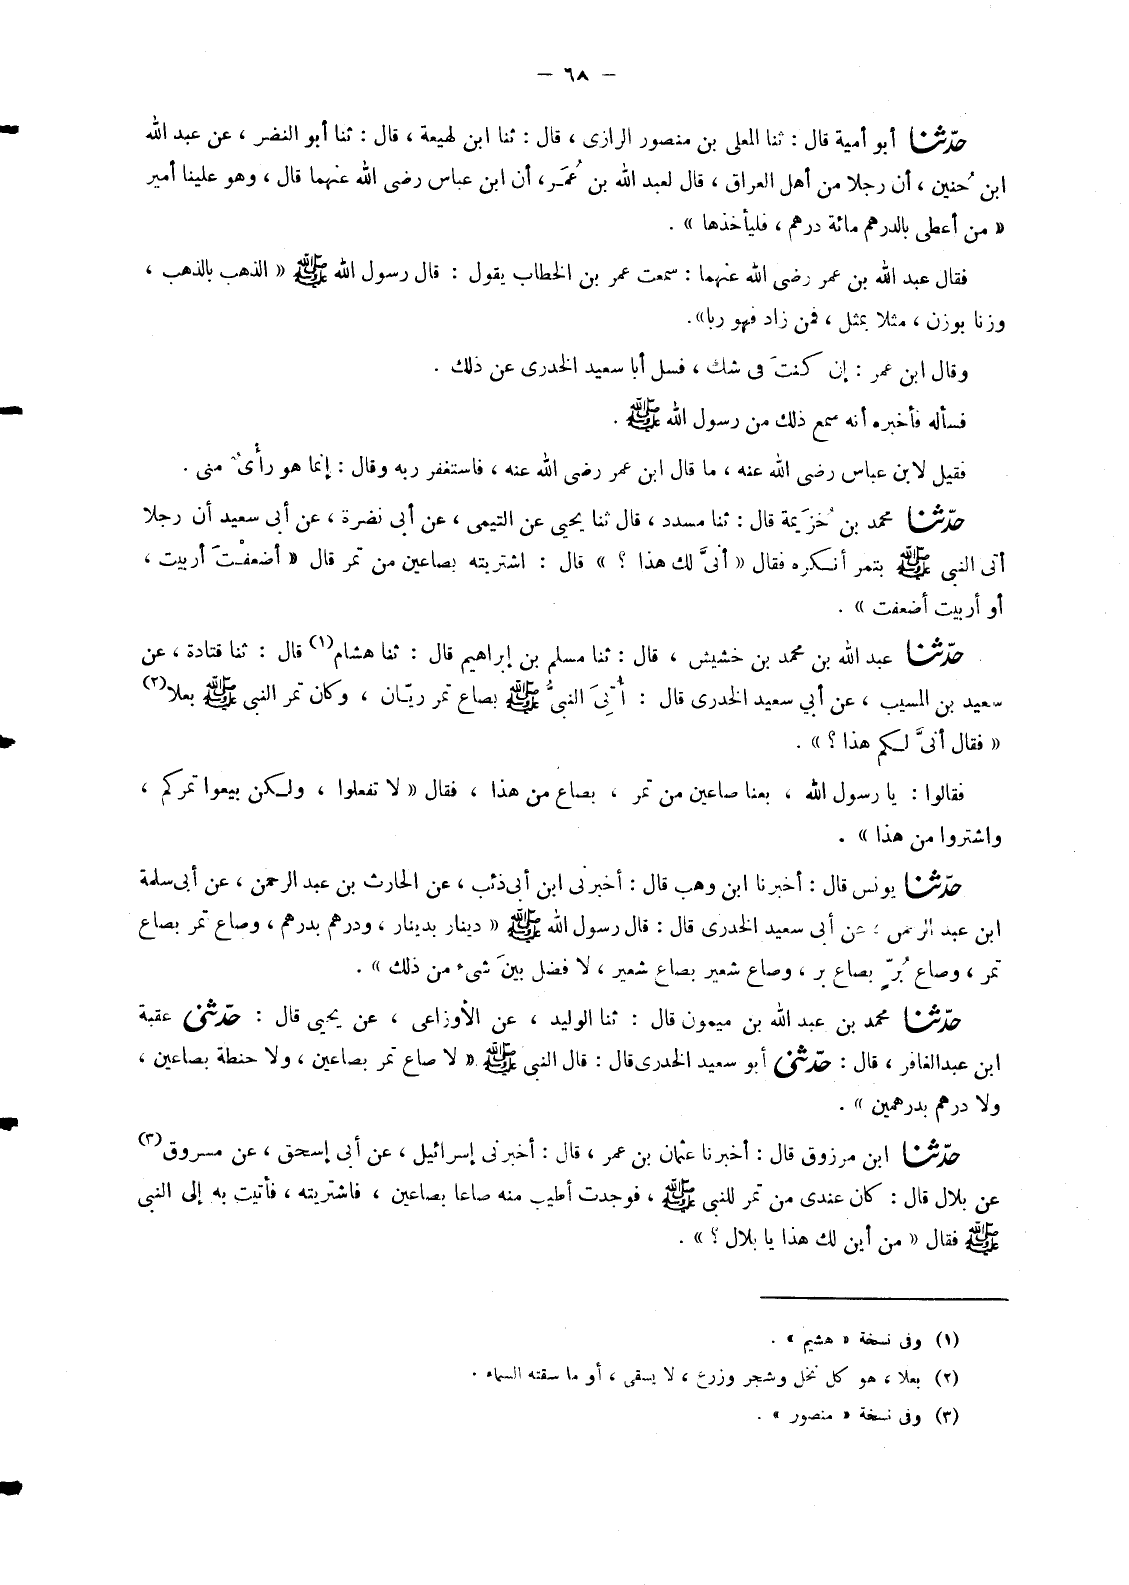 — ٦٨ —
حدّثنا أبو أمية قال : ثنا المعلى بن منصور الرازى ، قال : ثنا ابن لهيعة ، قال : ثنا أبو النضر ، عن عبد الله
ابن حُنين ، أن رجلا من أهل العراق ، قال لعبد الله بن عُمَـر، أن ابن عباس رضى الله عنهما قال ، وهو علينا أمير
« من أعطى بالدرهم مائة درهم ، فليأخذها » .
فقال عبد الله بن عمر رضى الله عنهما : سمعت عمر بن الخطاب يقول : قال رسول الله ﷺ « الذهب بالذهب ،
وزنا بوزن ، مثلا بمثل ، فمن زاد فهو ربا».
وقال ابن عمر : إن كنتَ فى شك ، فسل أبا سعيد الخدرى عن ذلك .
فسأله فأخبره أنه سمع ذلك من رسول الله ﷺ .
فقيل لابن عباس رضى الله عنه ، ما قال ابن عمر رضى الله عنه ، فاستغفر ربه وقال : إنما هو رأىٌ منى .
حدّثنا محمد بن خُزَيمة قال : ثنا مسدد ، قال ثنا يحيى عن التيمى ، عن أبى نضرة ، عن أبى سعيد أن رجلا
أتى النبى ﷺ بتمر أنـكره فقال « أنىَّ لك هذا ؟ » قال : اشتريته بصاعين من تمر قال « أضعفْتَ أربيت ،
أو أربيت أضعفت » .
حدّثنا عبد الله بن محمد بن خشيش ، قال : ثنا مسلم بن إبراهيم قال : ثنا هشام(١) قال : ثنا قتادة ، عن
سعيد بن المسيب ، عن أبي سعيد الخدرى قال : أُتِىَ النبىُّ ﷺ بصاع تمر ريّـان ، وكان تمر النبى ﷺ بعلا(٢)
« فقال أنىَّ لـكم هذا ؟ » .
فقالوا : يا رسول الله ، بعنا صاعين من تمر ، بصاع من هذا ، فقال « لا تفعلوا ، ولـكن بيعوا تمركم ،
واشتروا من هذا » .
حدّثنا يونس قال : أخبرنا ابن وهب قال : أخبرنى ابن أبى ذئب ، عن الحارث بن عبد الرحمن ، عن أبى سلمة
ابن عبد الرحمن ، عن أبى سعيد الخدرى قال : قال رسول الله ﷺ « دينار بدينار ، ودرهم بدرهم ، وصاع تمر بصاع
تمر ، وصاع بُرّ بصاع بر ، وصاع شعير بصاع شعير ، لا فضل بينَ شىء من ذلك » .
حدّثنا محمد بن عبد الله بن ميمون قال : ثنا الوليد ، عن الأوزاعى ، عن يحيى قال : حدّثنى عقبة
ابن عبدالغافر ، قال : حدّثنى أبو سعيد الخدرى قال : قال النبى ﷺ « لا صاع تمر بصاعين ، ولا حنطة بصاعين ،
ولا درهم بدرهمين » .
حدّثنا ابن مرزوق قال : أخبرنا عثمان بن عمر ، قال : أخبرنى إسرائيل ، عن أبى إسحق ، عن مسروق(٣)
عن بلال قال : كان عندى من تمر للنبى ﷺ ، فوجدت أطيب منه صاعا بصاعين ، فاشتريته ، فأتيت به إلى النبى
ﷺ فقال « من أين لك هذا يا بلال ؟ » .
(١) وفى نسخة « هشيم » .
(٢) بعلا ، هو كل نخل وشجر وزرع ، لا يسقى ، أو ما سقته السماء .
(٣) وفى نسخة « منصور » .